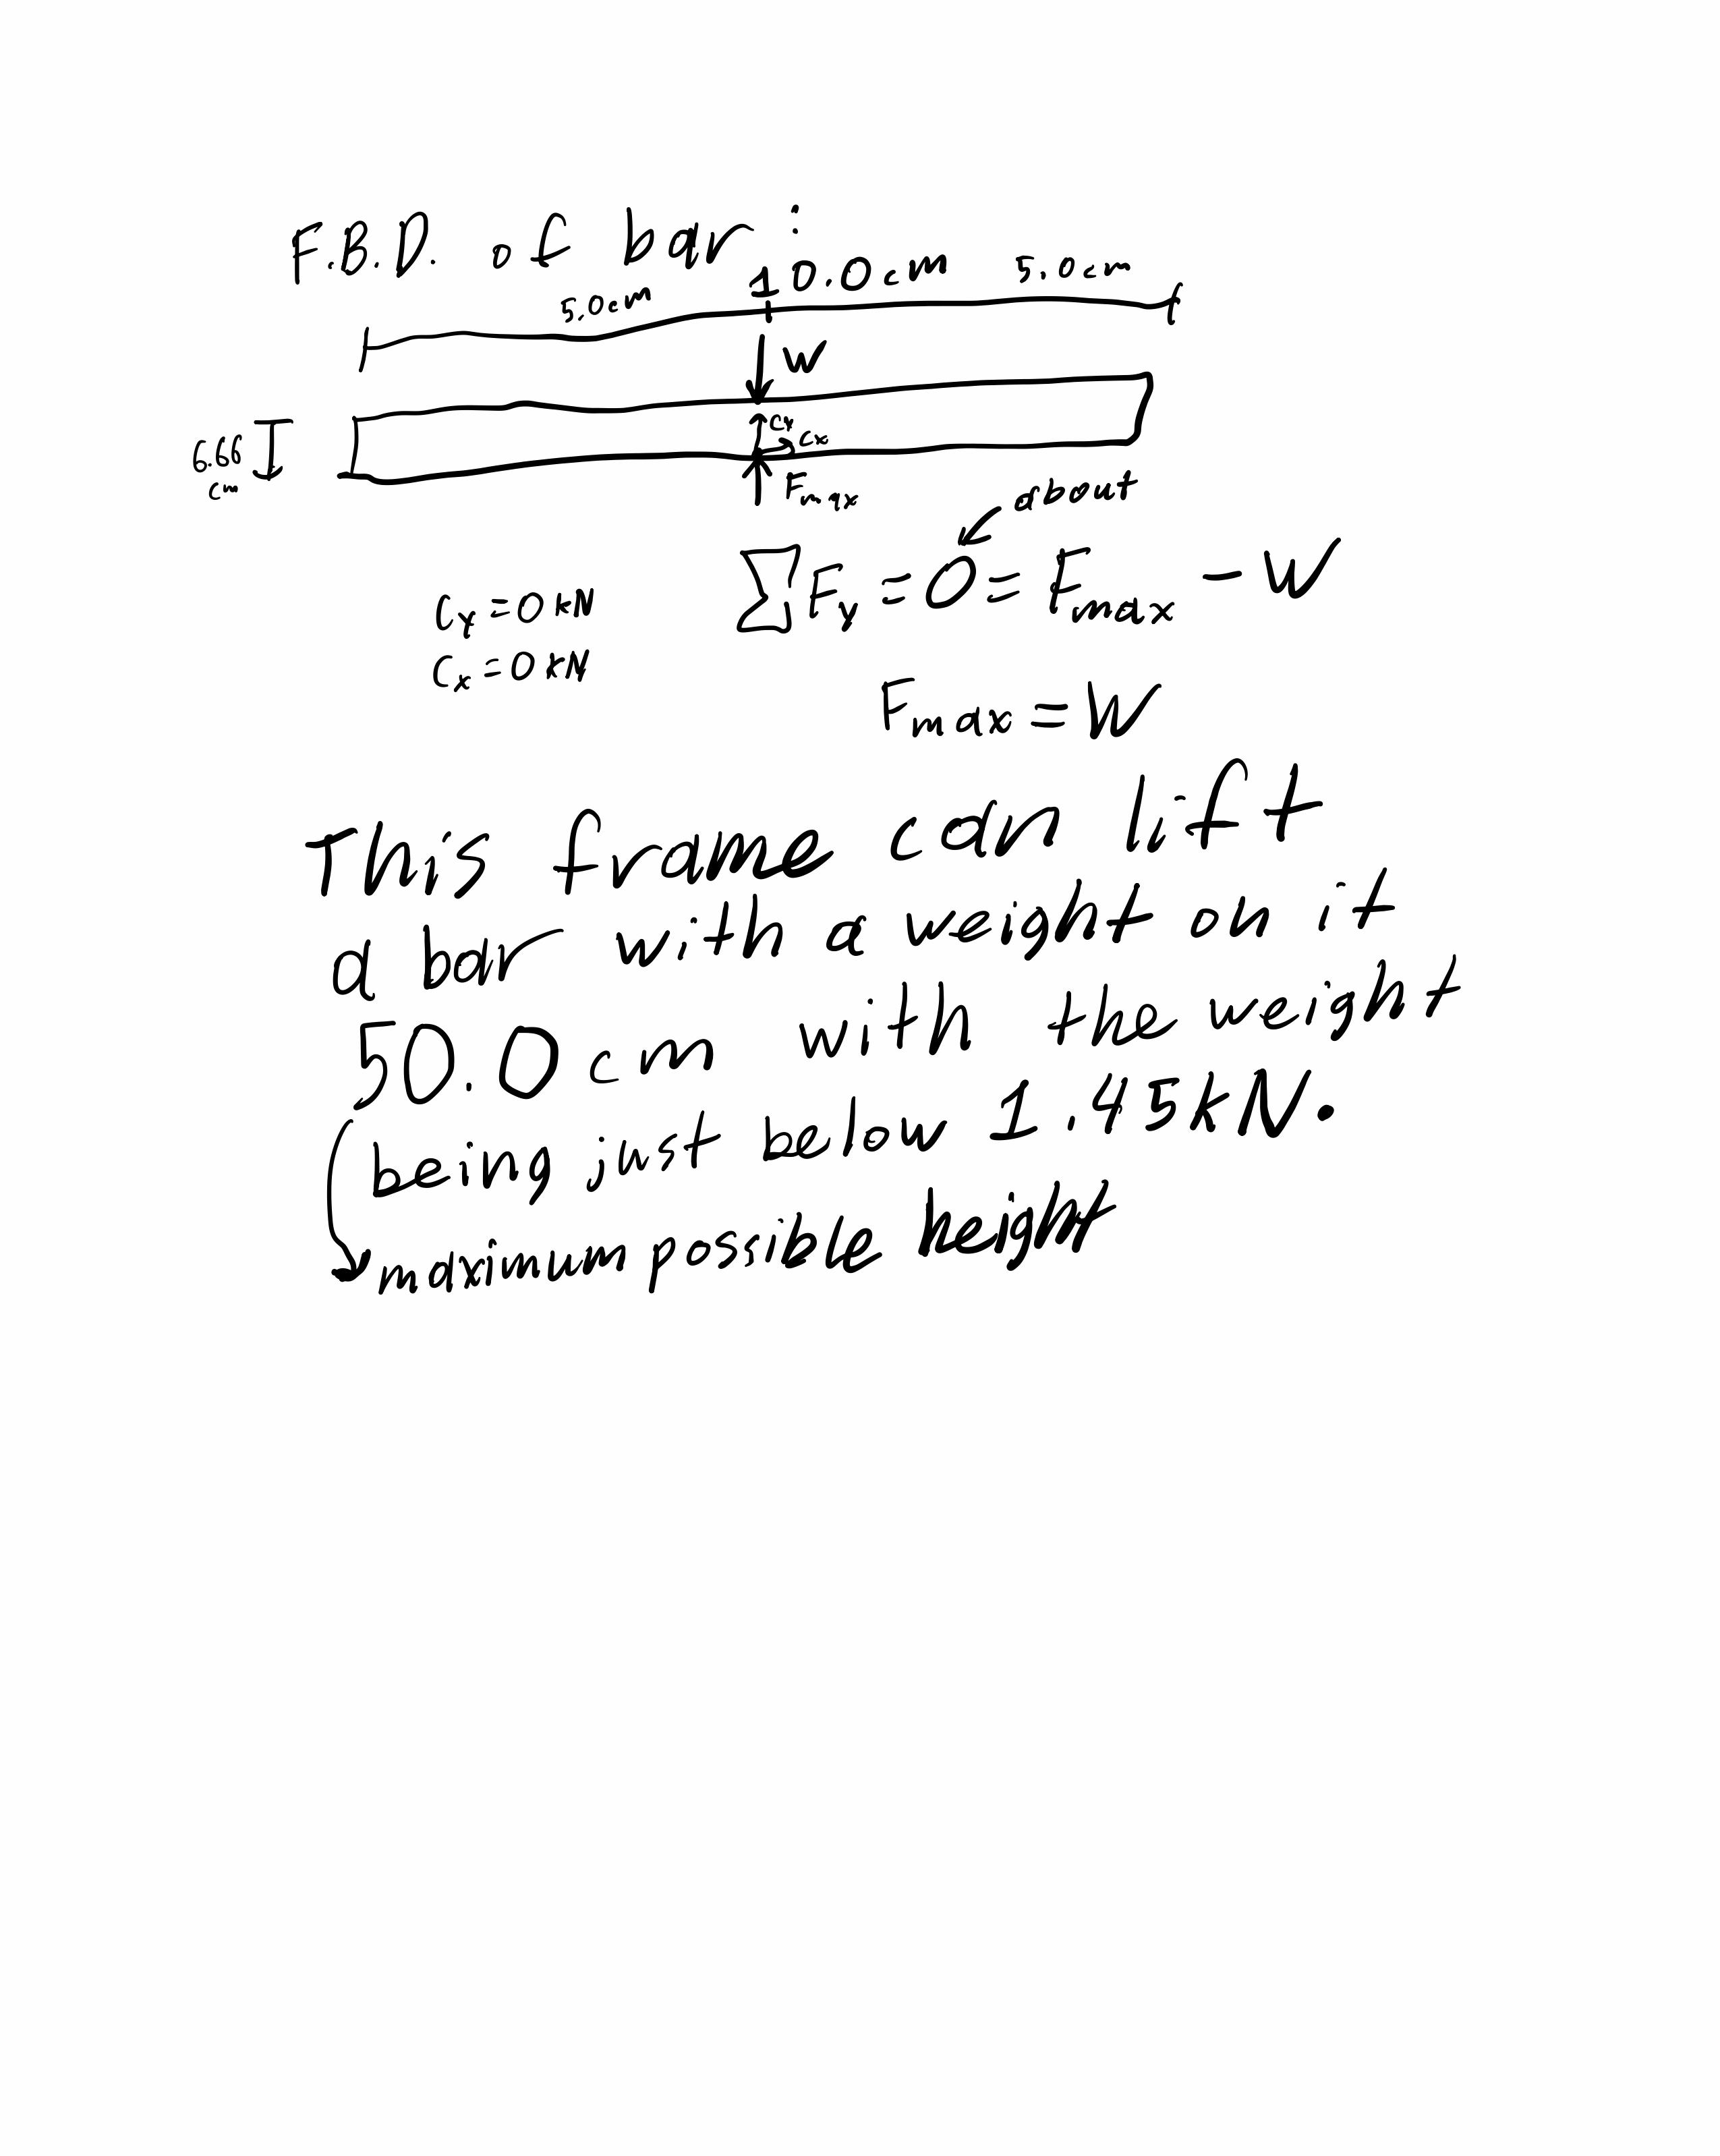 F.B.D. of bar:
10.0cm
5.0cm
5.0cm
W
6.66
cm
Cy
Cx
Fmax
about
ΣFy = 0 = Fmax - W
Cy = 0 kN
Cx = 0 kN
Fmax = W
This frame can lift
a bar with a weight on it
50.0 cm with the weight
being just below 1.45kN.
maximum possible height